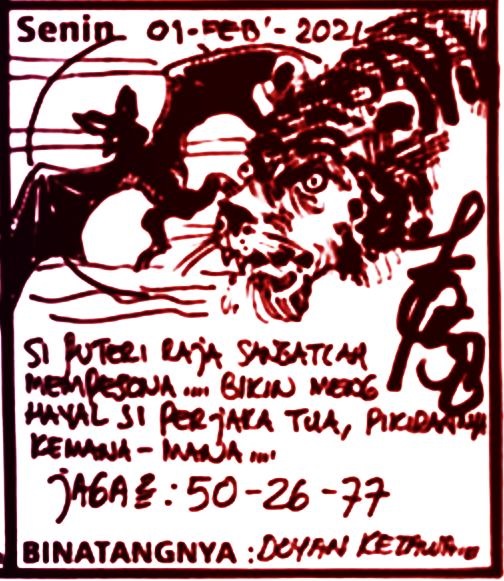 Senin 01-FEB'-2021
SI PUTERI RAJA SANGATLAH
MEMPESONA .... BIKIN MENG
HAYAL SI PERJAKA TUA, PIKIRANNYA
KEMANA-MANA ....
jAGA2 : 50-26-77
BINATANGNYA : DOYAN KETAWA....